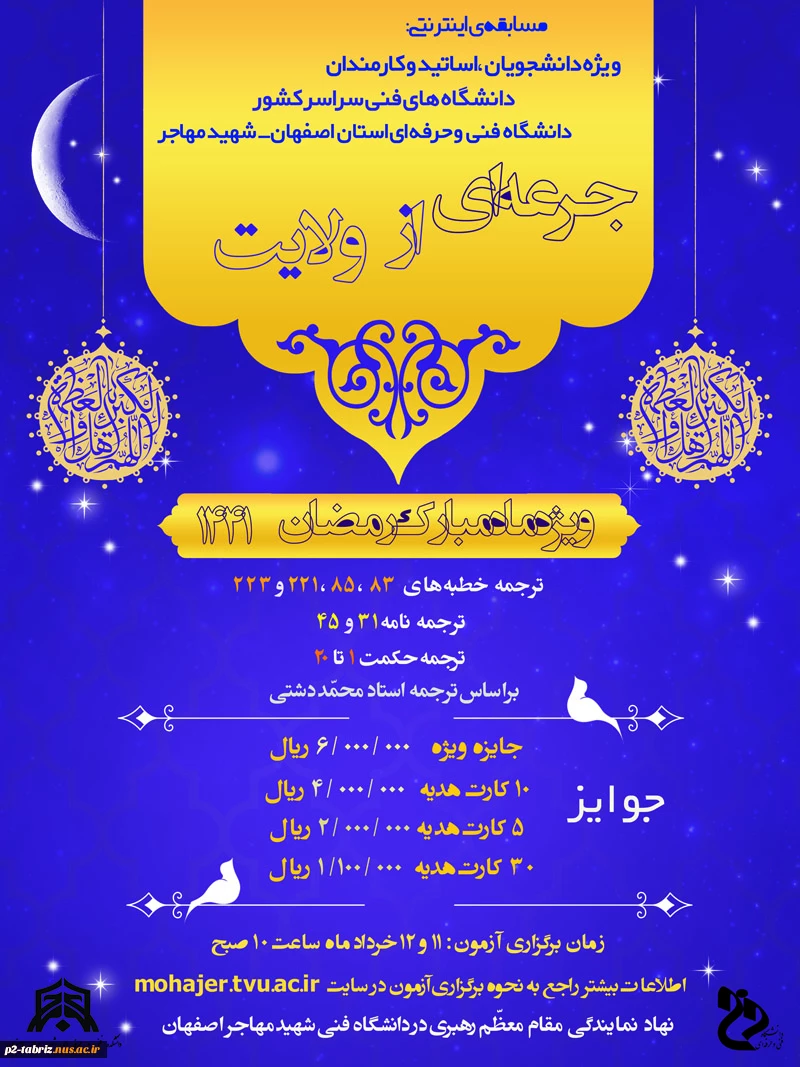 مسابقه‌ی اینترنتی:
ویژه دانشجویان ،اساتید و کارمندان
دانشگاه های فنی سراسر کشور
دانشگاه فنی و حرفه ای استان اصفهان_ شهید مهاجر
جرعه‌ای از ولایت
ویژه ماه مبارک رمضان ۱۴۴۱
ترجمه خطبه های ۸۳ ،۸۵ ،۲۲۱ و ۲۲۳
ترجمه نامه ۳۱ و ۴۵
ترجمه حکمت ۱ تا ۲۰
براساس ترجمه استاد محمّد دشتی
جوایز
جایزه ویژه ۶/۰۰۰/۰۰۰ ریال
۱۰ کارت هدیه ۴/۰۰۰/۰۰۰ ریال
۵ کارت هدیه ۲/۰۰۰/۰۰۰ ریال
۳۰ کارت هدیه ۱/۱۰۰/۰۰۰ ریال
زمان برگزاری آزمون : ۱۱ و ۱۲ خرداد ماه ساعت ۱۰ صبح
اطلاعات بیشتر راجع به نحوه برگزاری آزمون در سایت mohajer.tvu.ac.ir
نهاد نمایندگی مقام معظّم رهبری در دانشگاه فنی شهید مهاجر اصفهان
p2-tabriz.nus.ac.ir